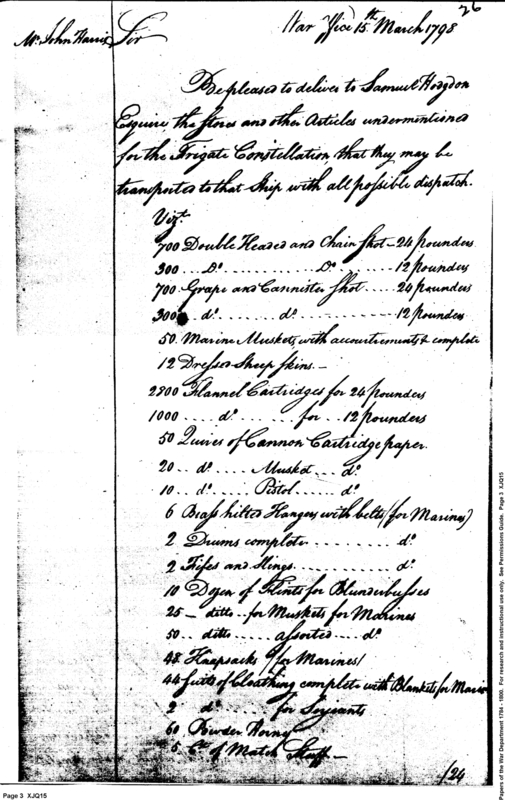 26
War Office 15th March 1798
Mr. John Harris
Sir
Be pleased to deliver to Samuel Hodgdon
Esquire, the Stores and other Articles undermentioned
for the Frigate Constellation, that they may be
transported to that Ship with all possible dispatch.
Vizt.
700 Double Headed and Chain Shot - 24 pounders
300 .. Do. .......... Do. ...... 12 pounders
700 Grape and Cannister Shot ..... 24 pounders
300 .. do. ...... do. .......... 12 pounders
50. Marine Muskets, with accoutrements complete
12 Dressed Sheep Skins. -
2800 Flannel Cartridges for 24 pounders
1000 .... do. ...... for .. 12 pounders
50 Quires of Cannon Cartridge paper.
20 .. do. .... Musket ... do.
10 .. do. .... Pistol ..... do.
6 Brass hilted Hangers with belts (for Marines)
2 Drums complete .......... do.
2 Fifes and Slings .......... do.
10 Dozen of Flints for Blunderbusses
25 - ditto .. for Muskets for Marines
50 .. ditto ..... assorted .... do.
48. Knapsacks (for Marines)
44 Suits of Cloathing complete with Blankets for Marin
2 do. ...... for Serjeants
60 Powder Horns
5 Ct. of Match Stuff -
/24
Page 3 XJQ15
Papers of the War Department 1784 - 1800. For research and instructional use only. See Permissions Guide. Page 3 XJQ15